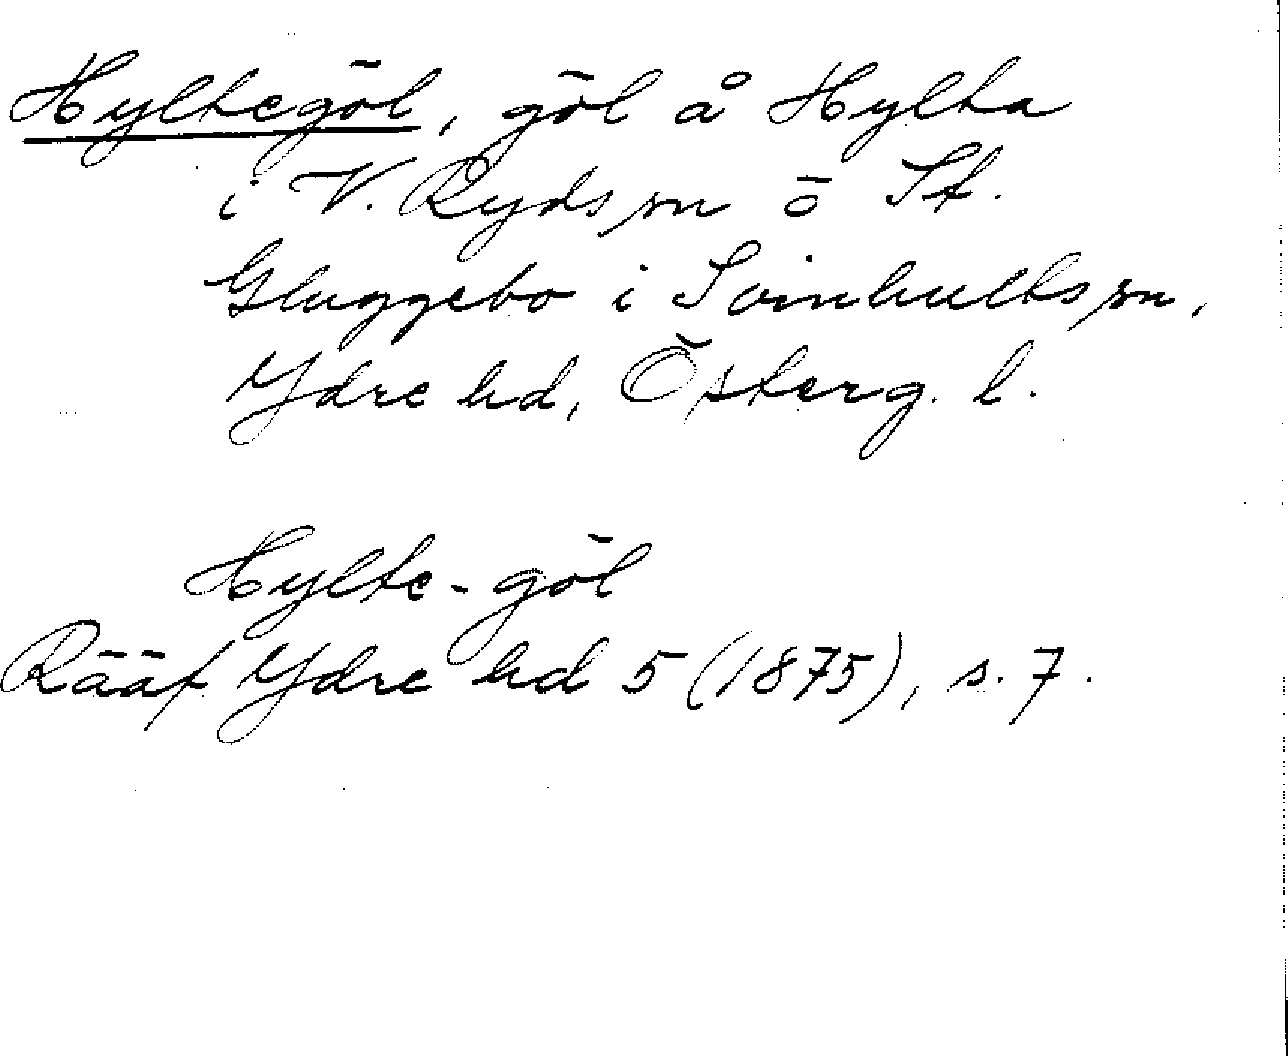 Hyltegöl, göl å Hylta
i V. Ryds sn ö St.
Gluggebo i Svinhults sn,
Ydre hd, Österg. l.
Hylte-göl
Rääf Ydre hd 5 (1875), s. 7.